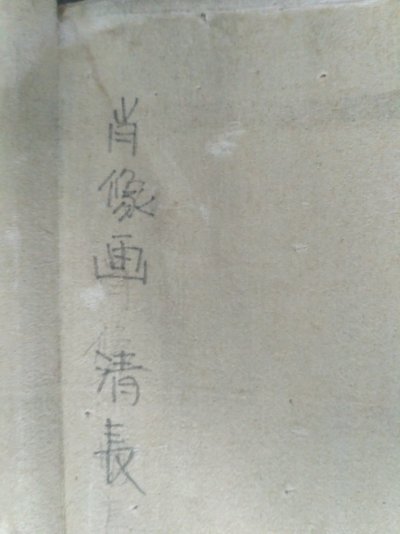 肖像画 清長